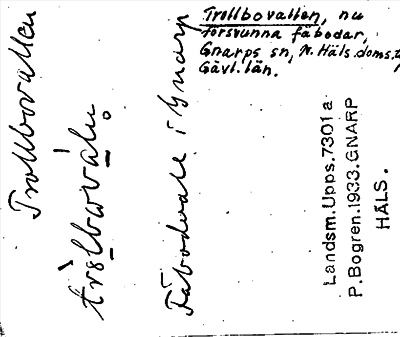 Trollbovallen, nu
försvunna fäbodar,
Gnarps sn, N. Häls. doms.
Gävl. län.
Trollbovallen
Fäbodvall i Gnarp
Landsm. Upps. 7301 a
P. Bogren. 1933. GNARP
HÄLS.